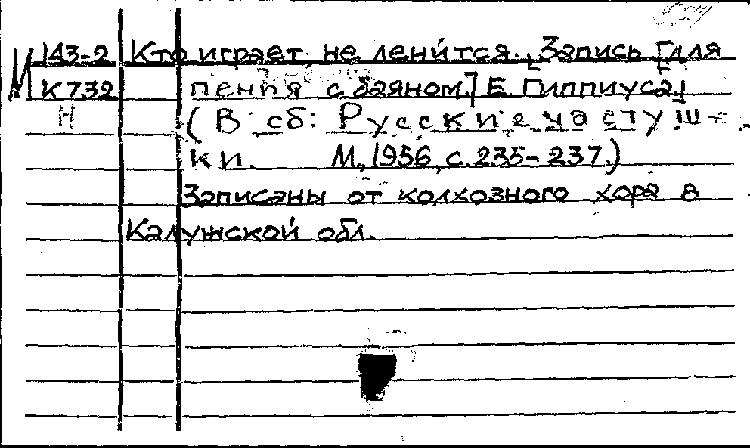 М 143-2 Кто играет, не ленится. [Запись [для
К 732 пения с баяном] Е. Гиппиуса]
Н (В сб: Русские частуш-
ки. М., 1956, с. 235-237.)
Записаны от колхозного хора в
Калужской обл.